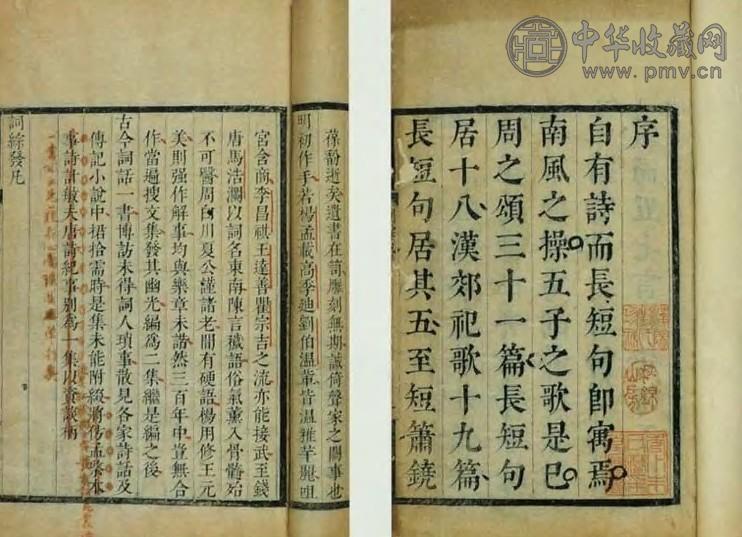 中华收藏网
www.pmv.cn
序
自有詩而長短句卽寓焉
南風之操五子之歌是已
周之頌三十一篇長短句
居十八漢郊祀歌十九篇
長短句居其五至短簫鐃
葆馚逝矣遺書在笥雕刻無期誠倚聲家之闕事也
明初作手若楊孟載高季迪劉伯溫輩皆溫雅芊麗咀
宮含商李昌祺王達善瞿宗吉之流亦能接武至錢
唐馬浩瀾以詞名東南陳言穢語俗氣薰入骨髓殆
不可醫周白川夏公謹諸老閒有硬語楊用修王元
美則强作解事均與樂章未諧然三百年中豈無合
作當遍搜文集發其幽光編爲二集繼是編之後
古今詞話一書博訪未得詞人瑣事散見各家詩話及
傳記小說中捃拾需時是集未能附綴將仿孟棨本
事詩計敏夫唐詩紀事別爲一集以資談柄
詞綜發凡